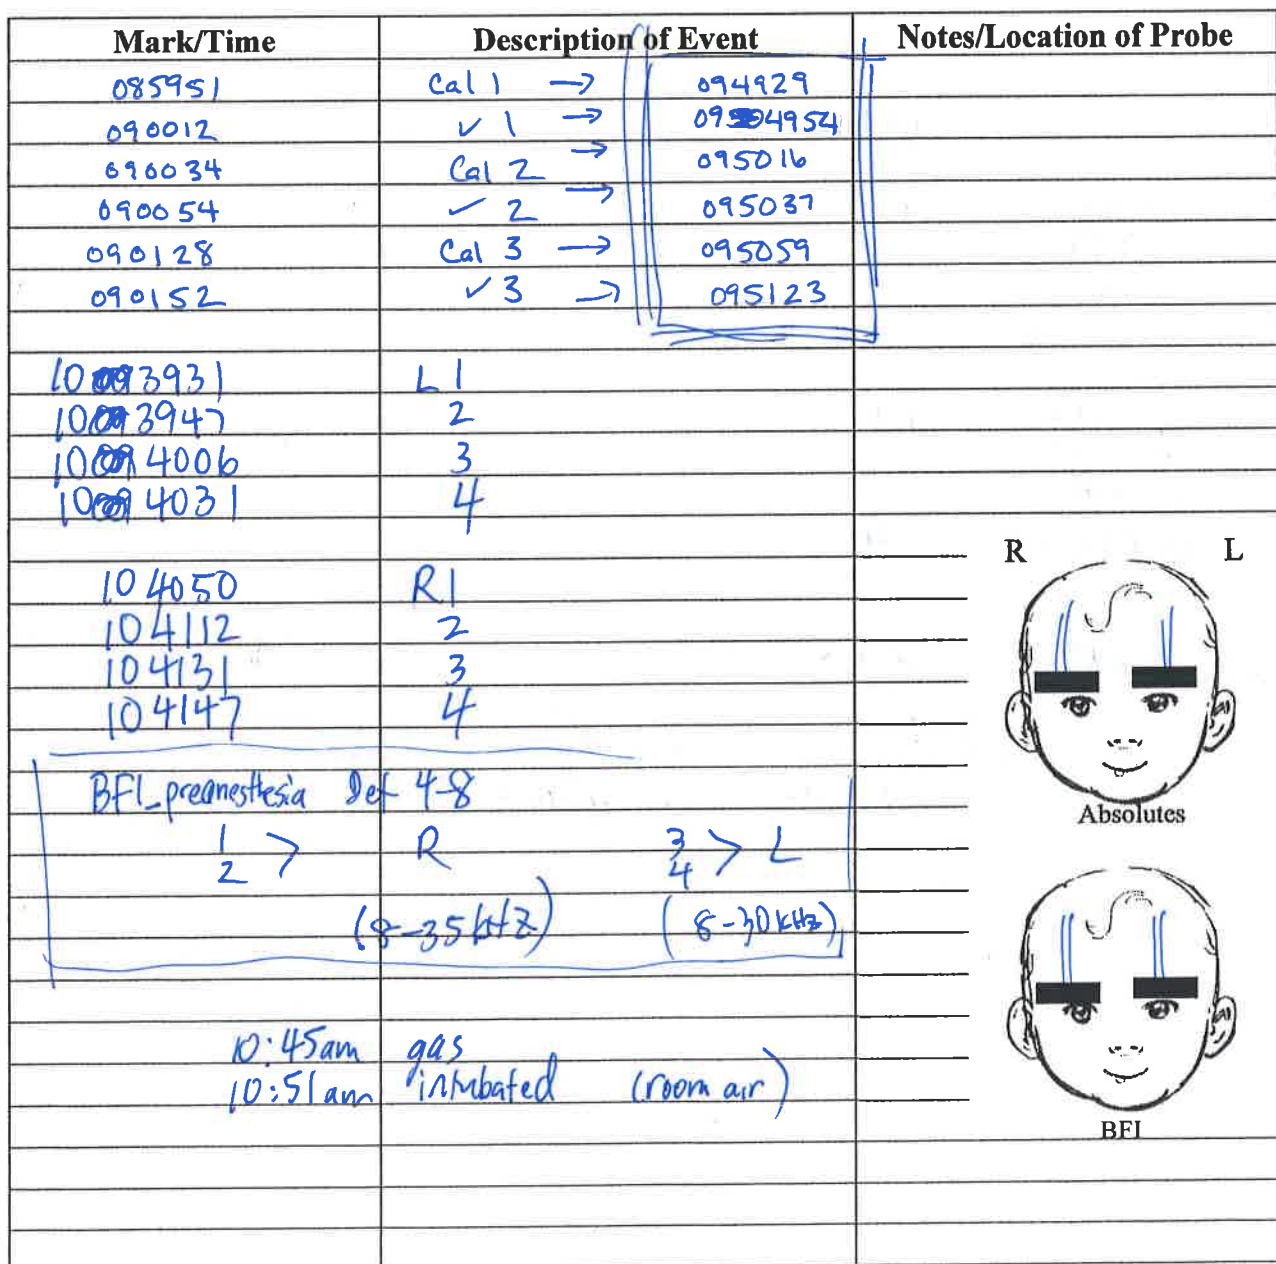 Mark/Time Description of Event Notes/Location of Probe
085951 Cal 1 → 094929
090012 ✓ 1 → 094954
090034 Cal 2 → 095016
090054 ✓ 2 → 095037
090128 Cal 3 → 095059
090152 ✓ 3 → 095123
103931 L 1
103947 2
104006 3
104031 4
R L
104050 R1
104112 2
104131 3
104147 4
BFI_preanesthesia 4-8
Absolutes
1 2 > R 3 4 > L
(8-35 kHz) (8-30 kHz)
10:45am gas
10:51am intubated (room air)
BFI